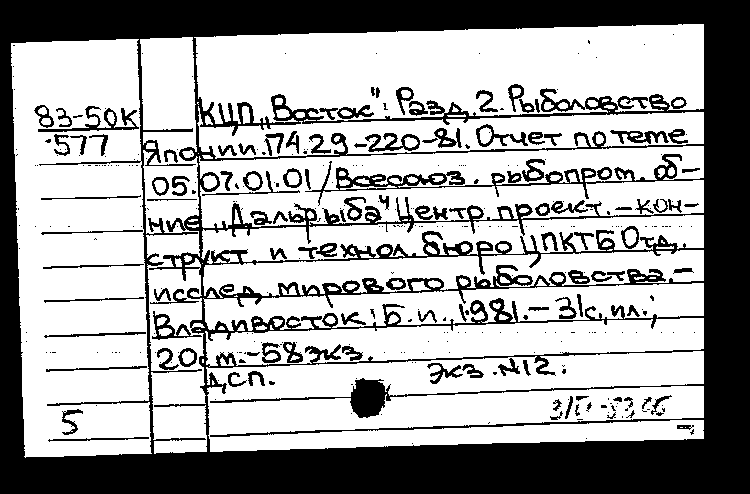 83-50К
577
КЦП „Восток": Разд. 2. Рыболовство
Японии. П4.29-220-81. Отчет по теме
05.07.01.01/Всесоюз. рыбопром. об-
ние „Дальрыба" Центр. проект.-кон-
структ. и технол. бюро ЦПКТБ Отд.
исслед. мирового рыболовства.-
Владивосток: Б.и., 1981.- 31с., ил.;
20см.-58экз.
ДСП. Экз. №12.
5